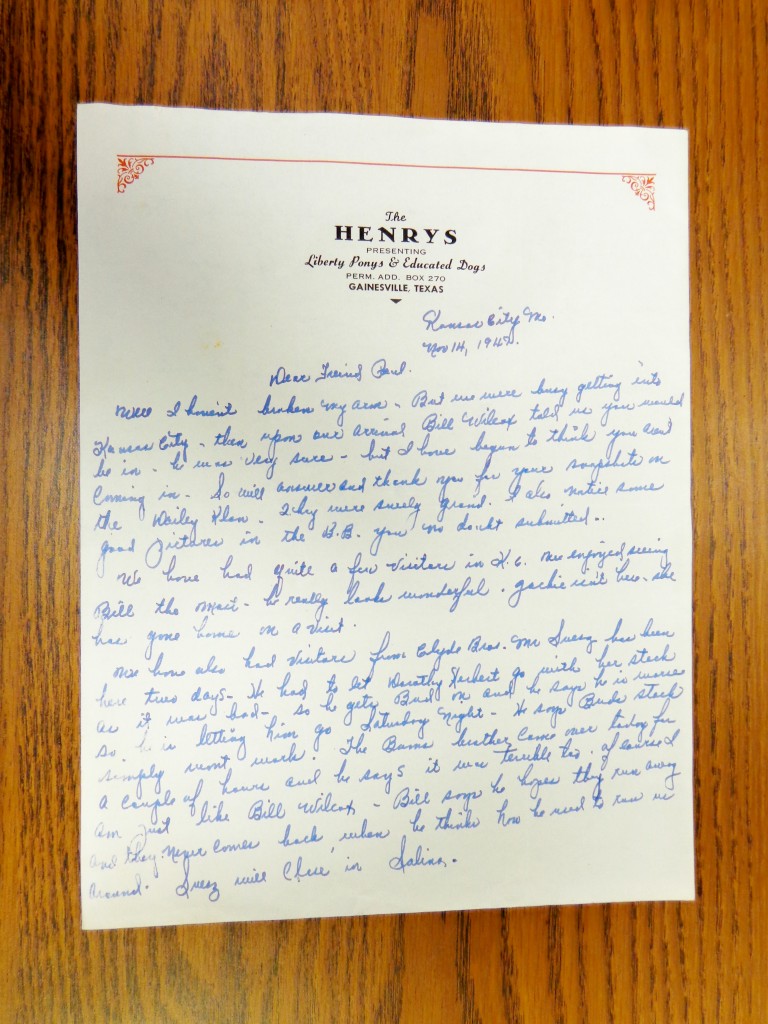 The
HENRYS
PRESENTING
Liberty Ponys & Educated Dogs
PERM. ADD. BOX 270
GAINESVILLE, TEXAS
Kansas City Mo.
Nov 14, 1947.
Dear Freind Paul.
Well I haven't broken my arm - But we were busy getting into
Kansas City - then upon our arrival Bill Wilcox told us you would
be in - he was very sure - but I have begun to think you aren't
coming in - So will answer and thank you for your snapshots on
the Dailey Klan - They were surely grand. I also notice some
good pictures in the B.B. you no doubt submitted..
We have had quite a few visitors in K.C. We enjoyed seeing
Bill the most - he really looks wonderful. Jackie isn't here - she
has gone home on a visit.
We have also had visitors from Clyde Bros. Mr Suesz has been
here two days - He had to let Dorothy Herbert go with her stock
as it was bad - so he gets Bud on and he says he is worse
so he is letting him go Saturday Night - He says Buds stock
simply wont work. The brother came over today for
a couple of hours and he says it was terrible too. of course I
am just like Bill Wilcox - Bill says he hopes they run away
and they never comes back when he thinks how he used to run us
around. Suesz will close in Salina.